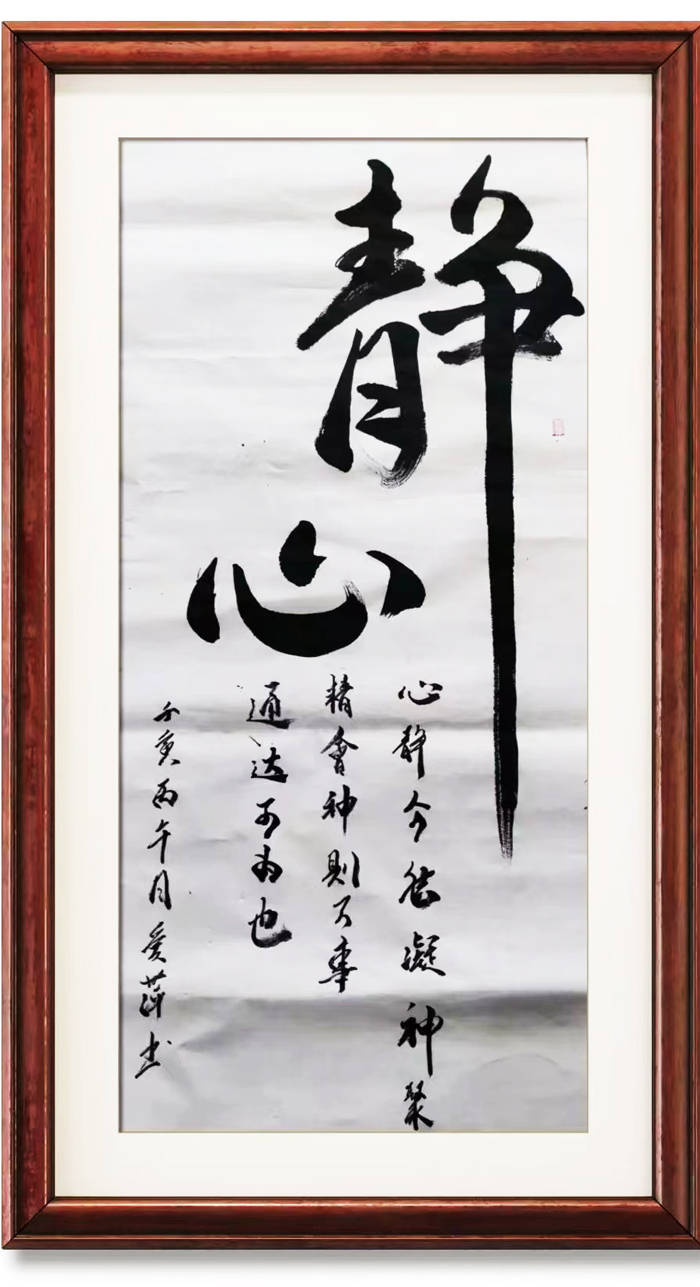 静心
心静今能凝神聚
精會神則万事
通达可为也
亥丙午月爱萍书